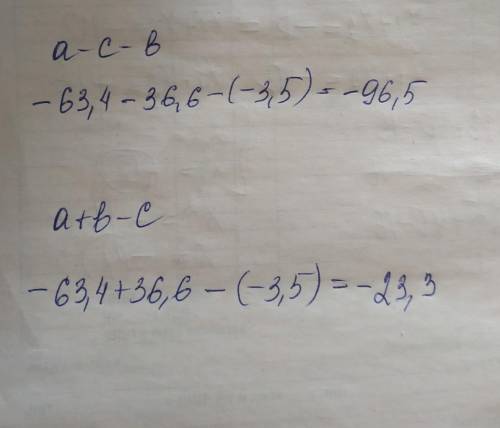 а-с-в
-63,4-36,6-(-3,5)=-96,5
а+в-с
-63,4+36,6-(-3,5)=-23,3